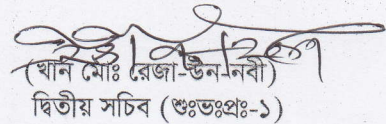 (খান মোঃ রেজা-উন-নবী)
দ্বিতীয় সচিব (শুঃভঃপ্রঃ-১)